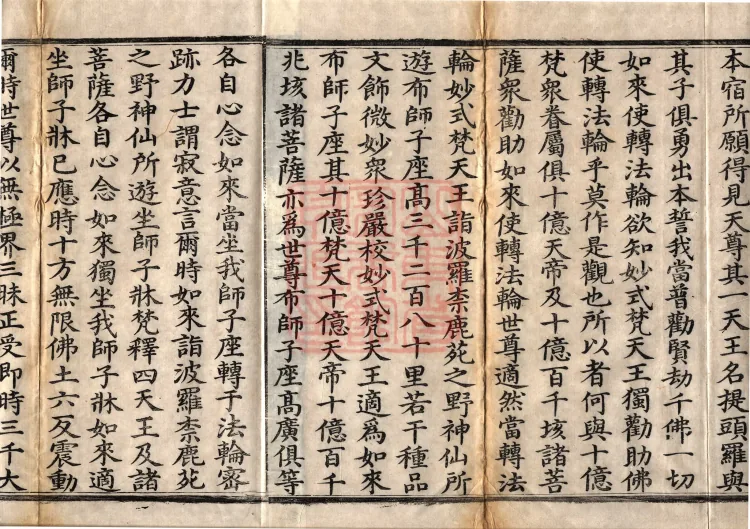 本宿所願得見天尊其一天王名提頭羅與
其子俱勇出本誓我當普勸賢劫千佛一切
如來使轉法輪欲知妙式梵天王獨勸助佛
使轉法輪乎莫作是觀也所以者何與十億
梵眾眷屬俱十億天帝及十億百千垓諸菩
薩眾勸助如來使轉法輪世尊適然當轉法
輪妙式梵天王詣波羅柰鹿苑之野神仙所
遊布師子座高三千二百八十里若干種品
文飾微妙眾珍嚴校妙式梵天王適為如來
布師子座其十億梵天十億天帝十億百千
兆垓諸菩薩亦爲世尊布師子座高廣俱等
各自心念如來當坐我師子座轉于法輪密
跡力士謂寂意言爾時如來詣波羅柰鹿苑
之野神仙所遊坐師子牀梵釋四天王及諸
菩薩各自心念如來獨坐我師子牀如來適
坐師子牀已應時十方無限佛土六反震動
爾時世尊以無極界三昧正受即時三千大